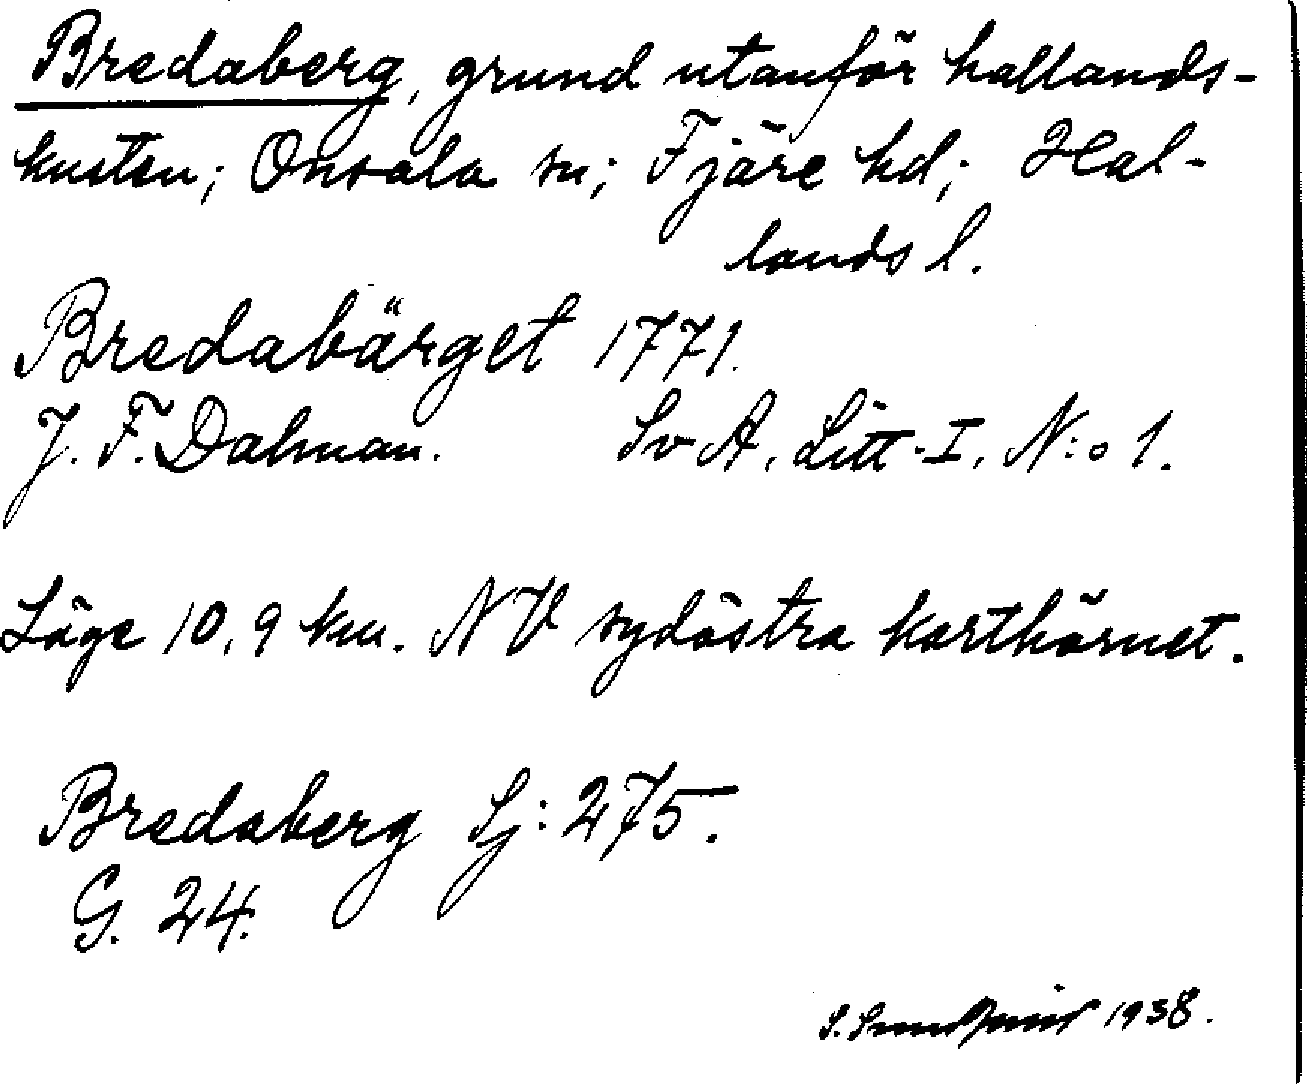 Bredaberg, grund utanför hallands-
kusten; Onsala sn; Fjäre hd; Hal-
lands l.
Bredabärget 1771.
J. F. Dalman. Sv A, Litt. I, N:o 1.
Läge 10,9 km. NV sydöstra karthörnet.
Bredaberg Sj: 275.
G. 24.
S. 1938.